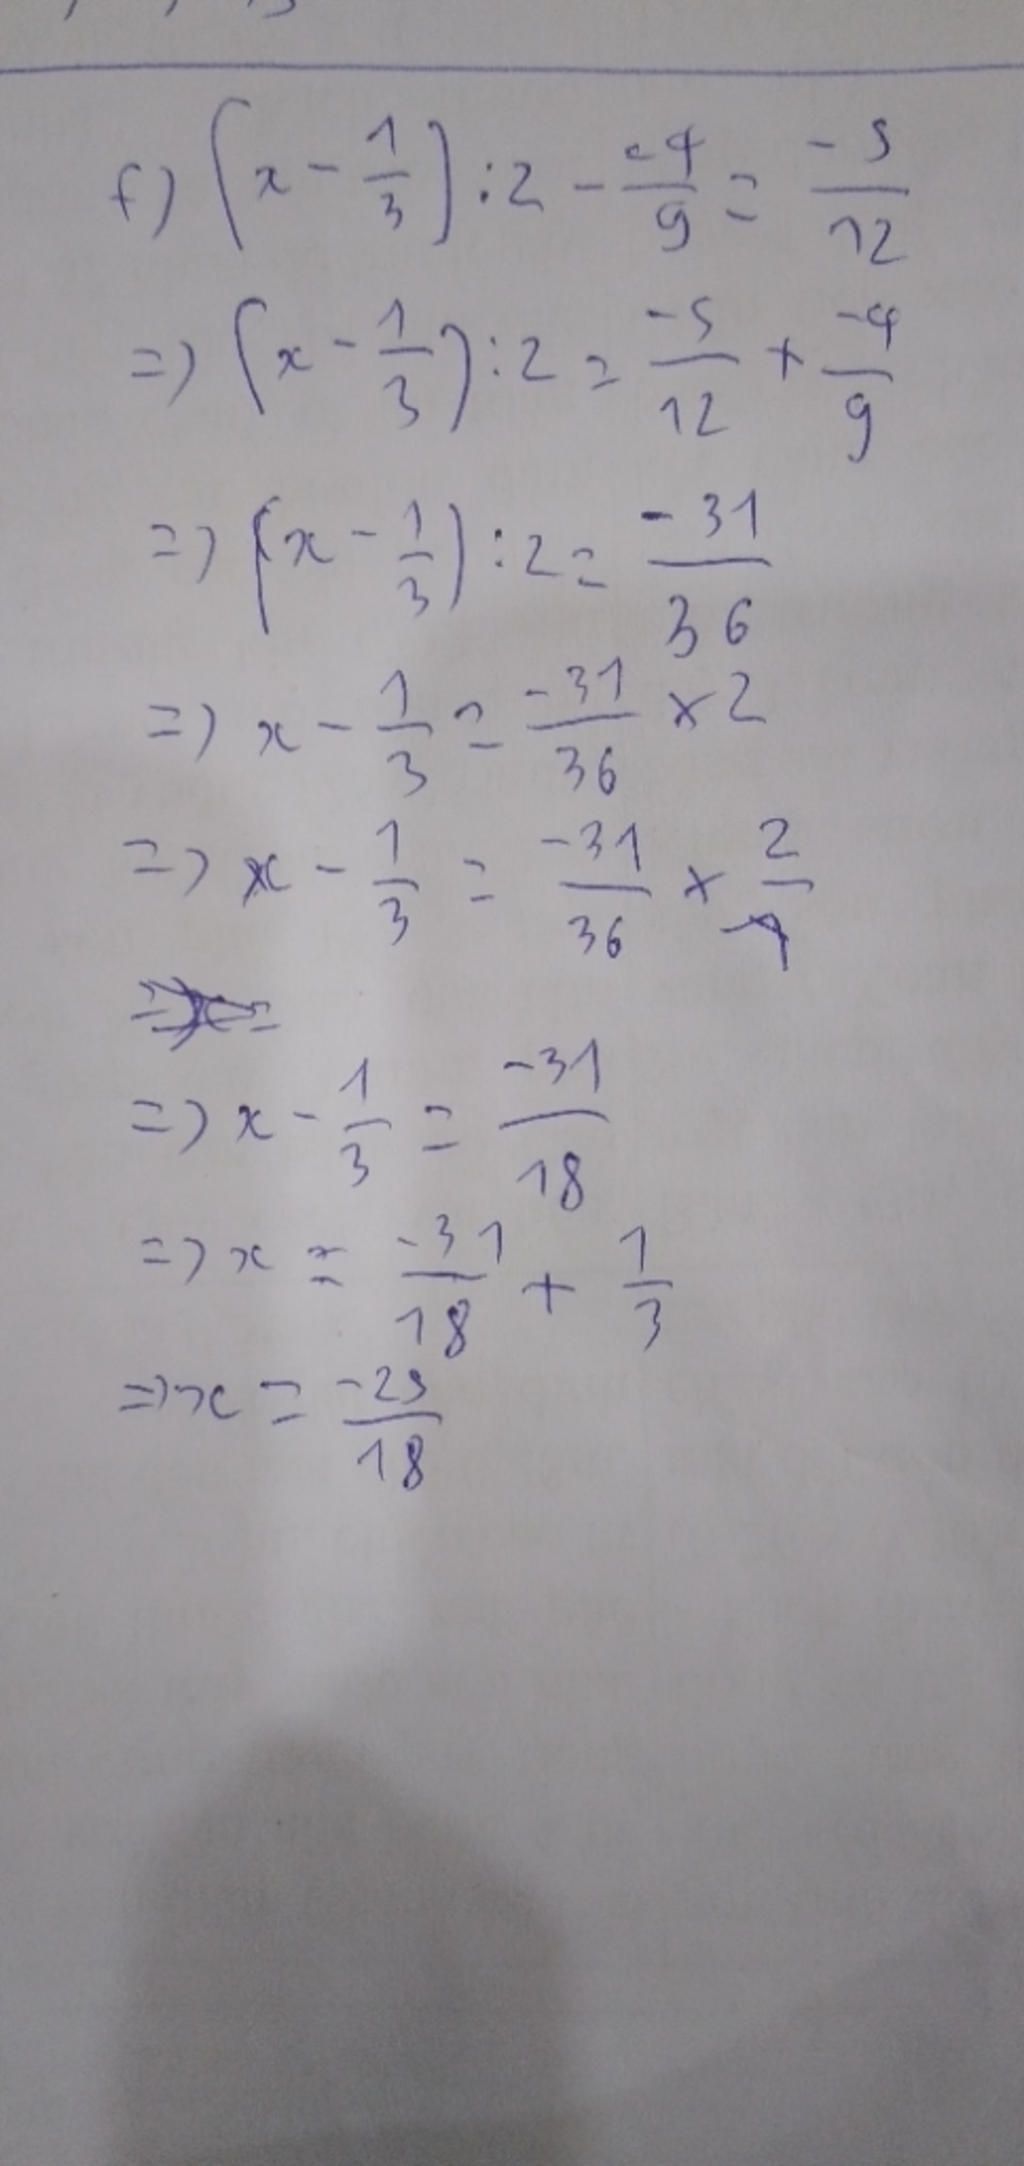 f) (x - 1/3) : 2 - -4/9 = -5/12
=> (x - 1/3) : 2 = -5/12 + -4/9
=> (x - 1/3) : 2 = -31/36
=> x - 1/3 = -31/36 × 2
=> x - 1/3 = -31/36 × 2/1
=> x - 1/3 = -31/18
=> x = -31/18 + 1/3
=> x = -25/18